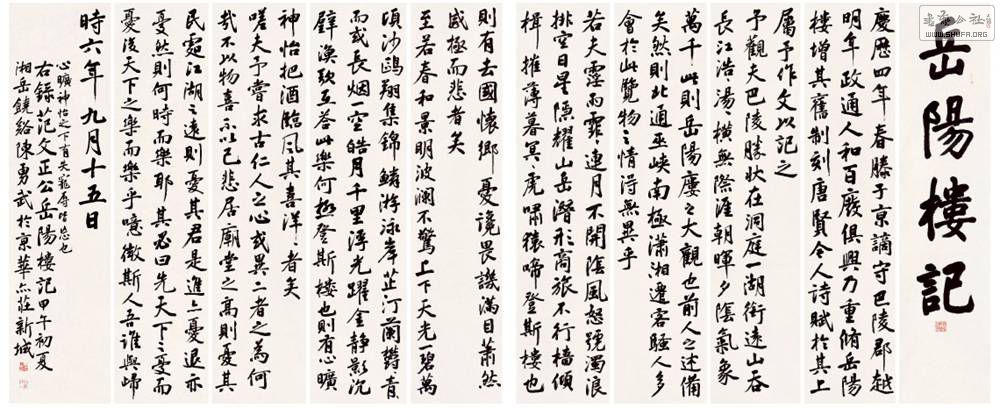 书法公社
WWW.SHUFA.ORG
岳陽樓記
慶歷四年春滕子京謫守巴陵郡越
明年政通人和百廢俱興乃重脩岳陽
樓增其舊制刻唐賢今人詩賦於其上
屬予作文以記之
予觀夫巴陵勝狀在洞庭一湖銜遠山吞
長江浩〻湯〻橫無際涯朝暉夕陰氣象
萬千此則岳陽樓之大觀也前人之述備
矣然則北通巫峽南極瀟湘遷客騷人多
會於此覽物之情得無異乎
若夫霪雨霏〻連月不開陰風怒號濁浪
排空日星隱耀山岳潛形商旅不行檣傾
楫摧薄暮冥〻虎嘯猿啼登斯樓也
則有去國懷鄉憂讒畏譏滿目蕭然
感極而悲者矣
至若春和景明波瀾不驚上下天光一碧萬
頃沙鷗翔集錦鱗游泳岸芷汀蘭鬱〻青〻
而或長烟一空皓月千里浮光躍金靜影沉
璧漁歌互答此樂何極登斯樓也則有心曠
神怡把酒臨風其喜洋〻者矣
嗟夫予嘗求古仁人之心或異二者之為何
哉不以物喜不以己悲居廟堂之高則憂其
民處江湖之遠則憂其君是進亦憂退亦
憂然則何時而樂耶其必曰先天下之憂而
憂後天下之樂而樂乎噫微斯人吾誰與歸
時六年九月十五日
心曠神怡之下有夫寵辱皆忘也
右錄范文正公岳陽樓記甲午初夏
湘岳饒谿陳勇武於京華莊新城